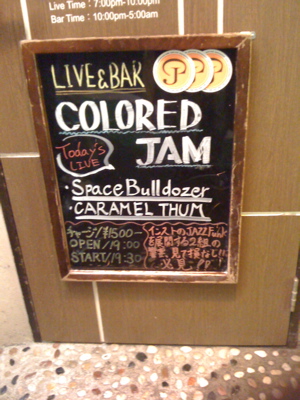 Live Time : 7:00pm-10:00pm
Bar Time : 10:00pm-5:00am
LIVE & BAR
PPP
COLORED
JAM
Today's
LIVE
・Space Bulldozer
・CARAMEL THUM
チャージ/¥1500-
OPEN/19:00
START/19:30
インストのJAZZ Funk
を展開する2組の
饗宴、見て損なし!!
必見!!